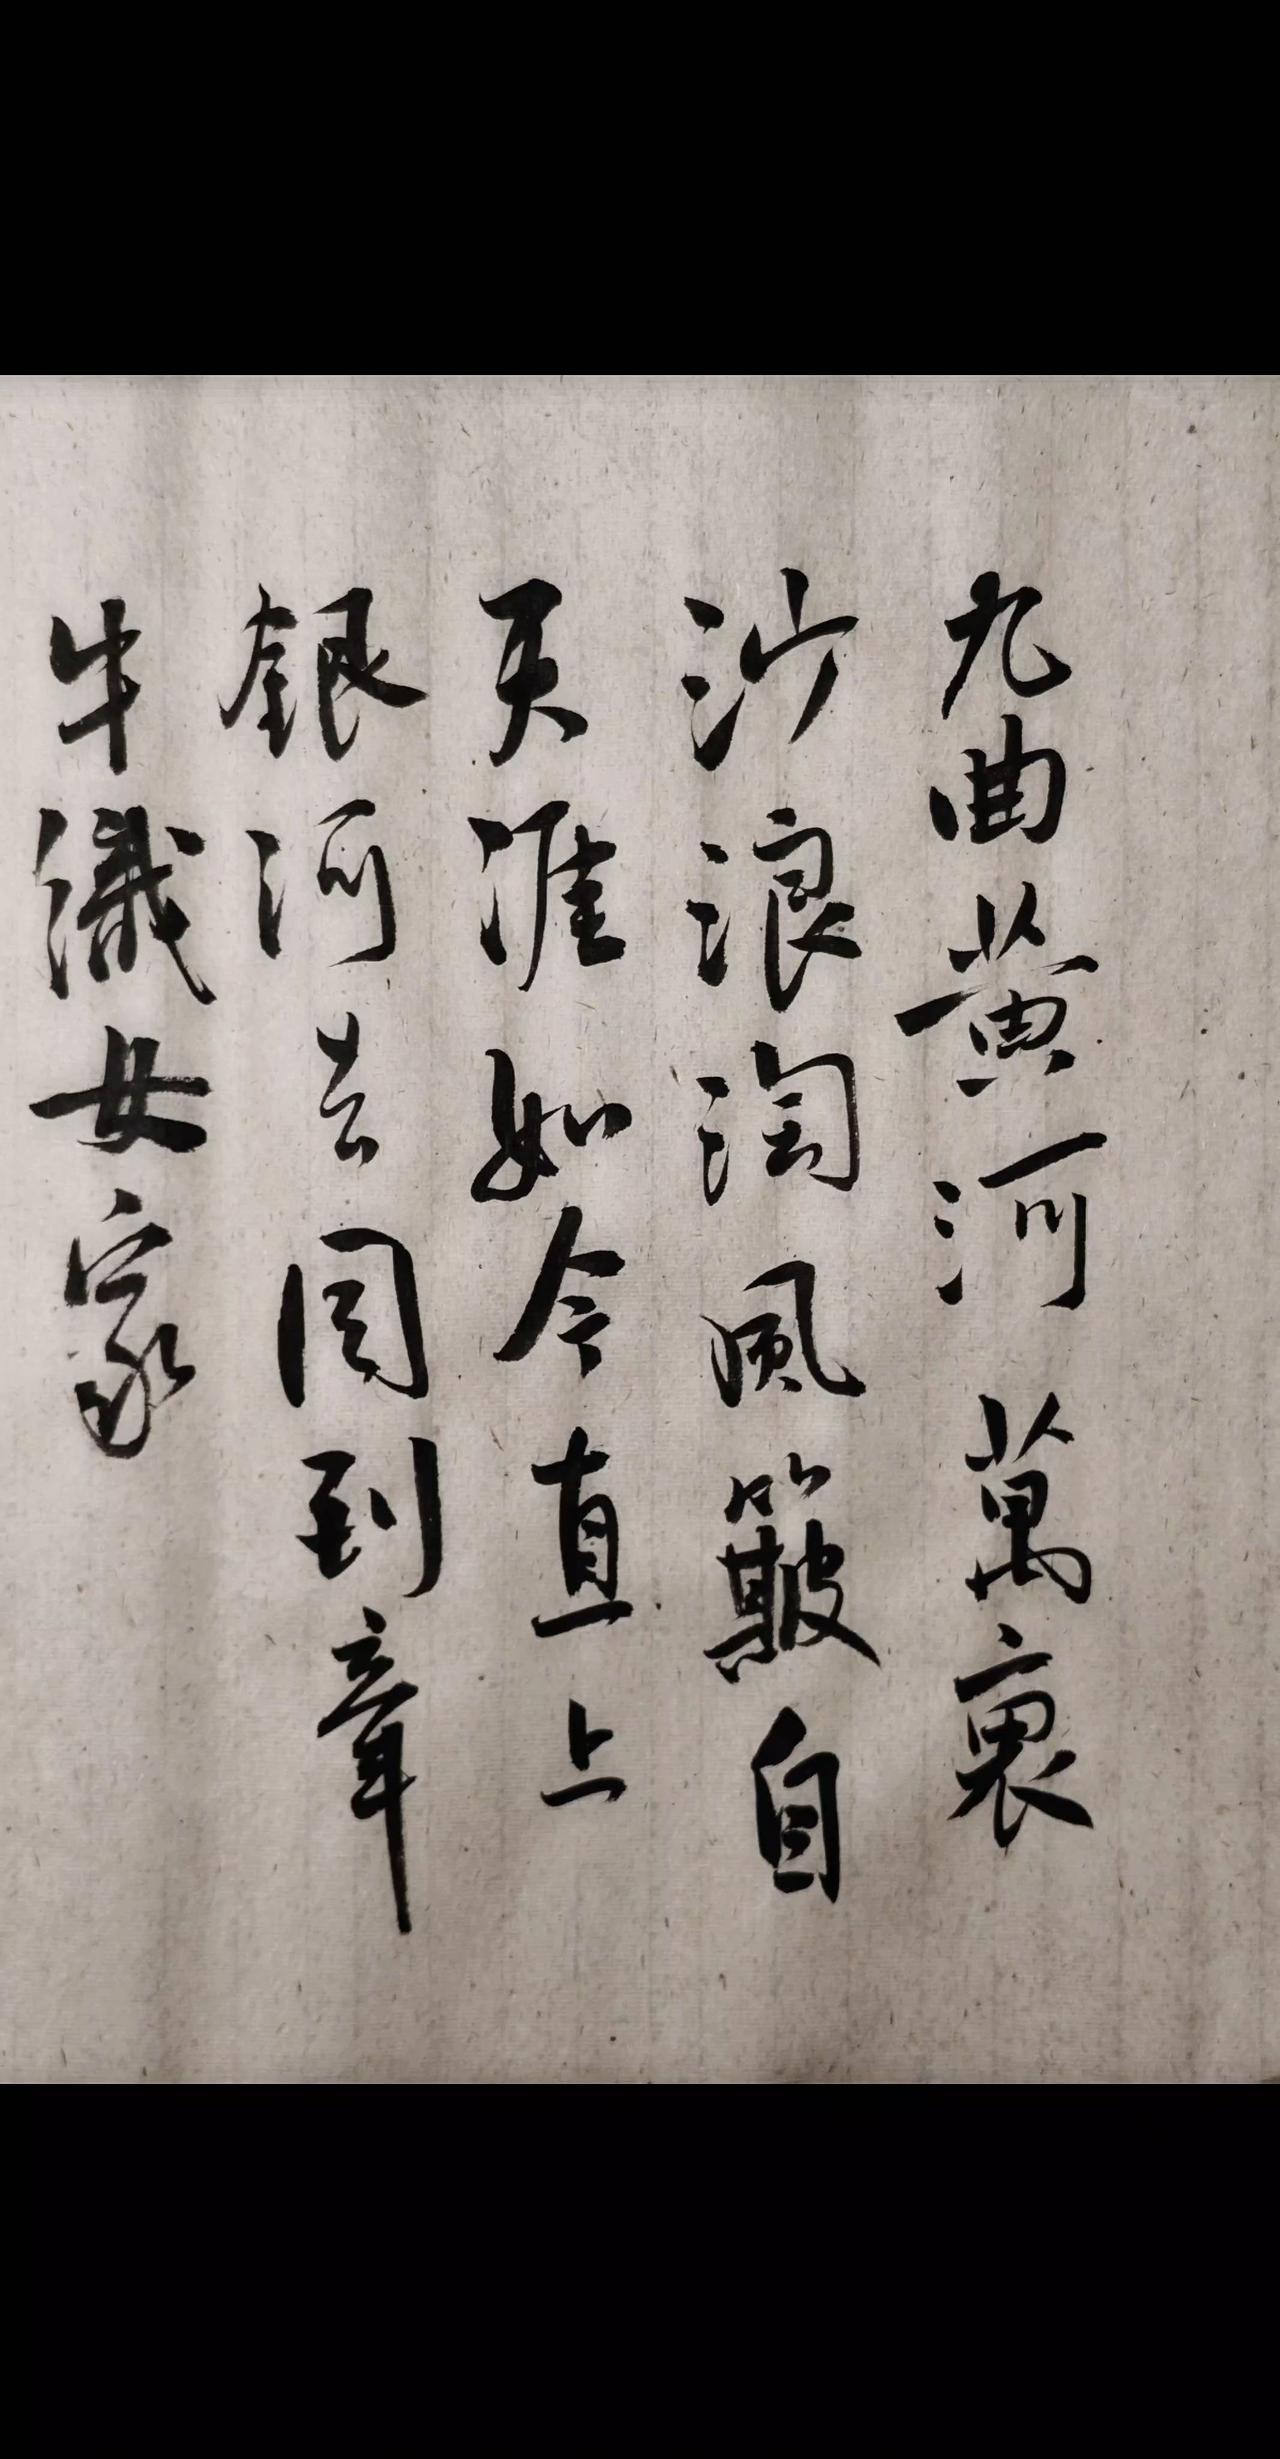 九曲黄河萬裏
沙浪淘風簸自
天涯如今直上
銀河去同到牽
牛織女家